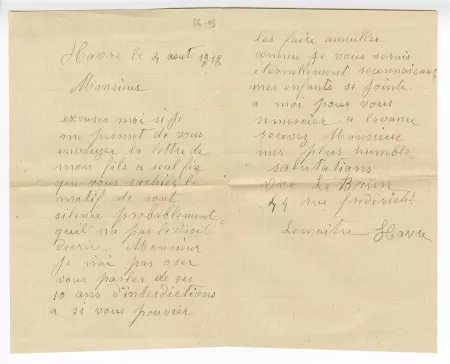 Havre le 4 aout 1918
Monsieur
excuses moi si je
me permet de vous
envoyer la lettre de
mon fils a seul fin
que vous sachier le
motif de sont
silence probablement
quil na pas le droit
decrire. Monsieur
Je n'ai pas oser
vous parler de ses
10 ans d'interdictions
a si vous pouvier
les faire annuller
comme je vous serais
eternellement reconnaissant
mes enfants se joints
a moi pour vous
remercier a lavance
recevez Monsieur
mes plus humble
salutations
Vve Le Brun
44 rue frederick
Lemaitre Havre